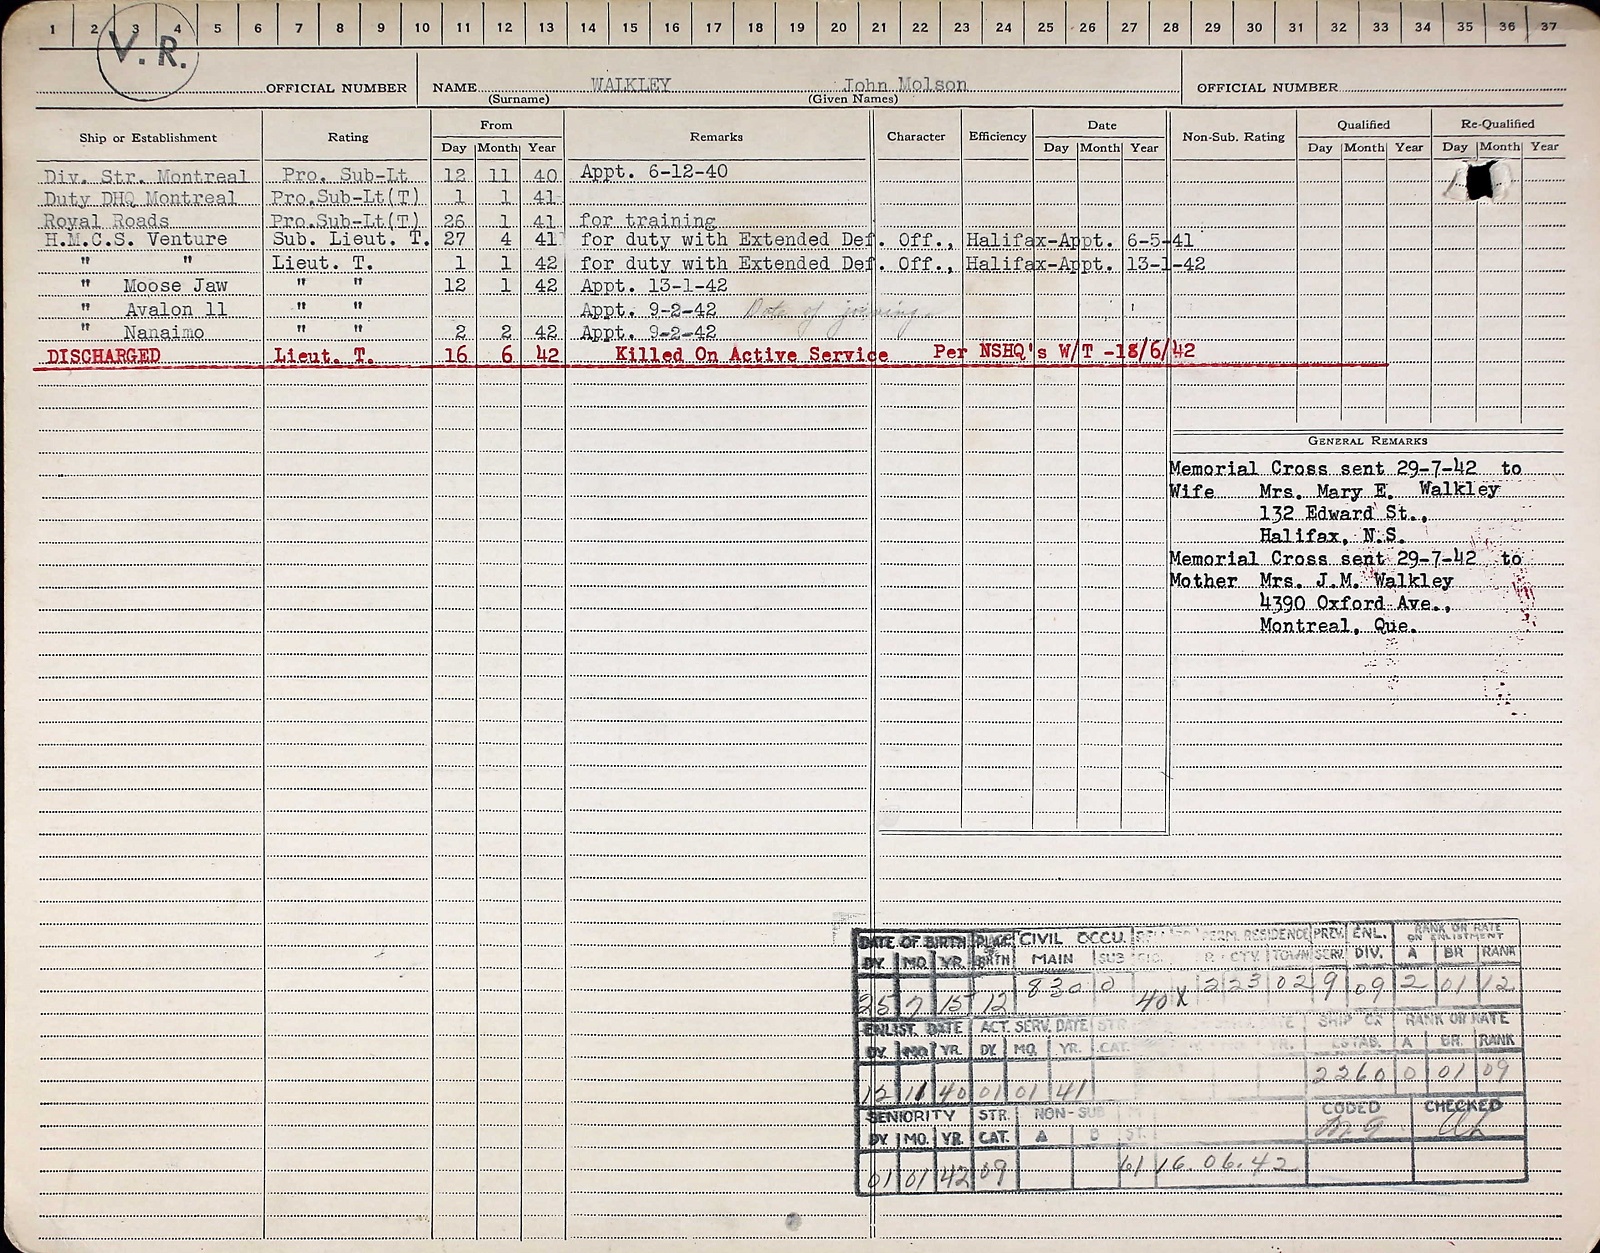 1 2 3 4 5 6 7 8 9 10 11 12 13 14 15 16 17 18 19 20 21 22 23 24 25 26 27 28 29 30 31 32 33 34 35 36 37
V.R.
OFFICIAL NUMBER NAME WALKLEY John Molson OFFICIAL NUMBER
(Surname) (Given Names)
Ship or Establishment Rating From Remarks Character Efficiency Date Non-Sub. Rating Qualified Re-Qualified
Day Month Year Day Month Year Day Month Year Day Month Year
Div. Str. Montreal Pro. Sub-Lt 12 11 40 Appt. 6-12-40
Duty DHQ Montreal Pro.Sub-Lt(T) 1 1 41
Royal Roads Pro.Sub-Lt(T) 26 1 41 for training
H.M.C.S. Venture Sub. Lieut. T. 27 4 41 for duty with Extended Def. Off., Halifax-Appt. 6-5-41
" " Lieut. T. 1 1 42 for duty with Extended Def. Off., Halifax-Appt. 13-1-42
" Moose Jaw " " 12 1 42 Appt. 13-1-42
" Avalon 11 " " Appt. 9-2-42 Date of joining
" Nanaimo " " 2 2 42 Appt. 9-2-42
DISCHARGED Lieut. T. 16 6 42 Killed On Active Service Per NSHQ's W/T -18/6/42
GENERAL REMARKS
Memorial Cross sent 29-7-42 to
Wife Mrs. Mary E. Walkley
132 Edward St.,
Halifax, N.S.
Memorial Cross sent 29-7-42 to
Mother Mrs. J.M. Walkley
4390 Oxford Ave.,
Montreal, Que.
DATE OF BIRTH PLACE OF BIRTH CIVIL OCCU. PERM. RESIDENCE PREV. SERV. ENL. DIV. RANK OR RATE ON ENLISTMENT
DY. MO. YR. MAIN SUB CTY. TOWN A BR RANK
25 7 15 12 830 0 40 X 2 23 02 9 09 2 01 12
ENLIST. DATE ACT. SERV. DATE STR. SHIP OR ESTAB. RANK OR RATE
DY. MO. YR. DY. MO. YR. CAT. A BR. RANK
12 11 40 01 01 41 2260 0 01 09
SENIORITY STR. CAT. NON-SUB CODED CHECKED
DY. MO. YR. A B ST.
01 01 42 09 61 16.06.42